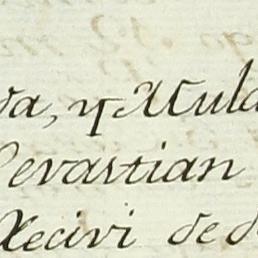 da, y Mula
Sevastian
Recivi de d